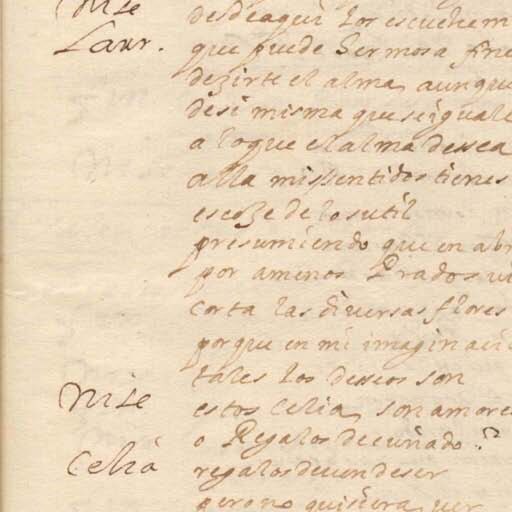 Nise desde aqui los escuchem
Laur. que puede Hermosa fine
dezirte el alma, aunque
desi misma que se iguale
a loque el alma dessea
alla missentidos tienes
escoze de lo sutil
presumiendo que en abr
por amenos Prados vi
corta las diversas flores
porque en mi imaginaci
tales los desseos son
Nise estos Celia, son amores
o Regalos de cuñado?
Celia regalos deven de ser
pero no quisiera ver